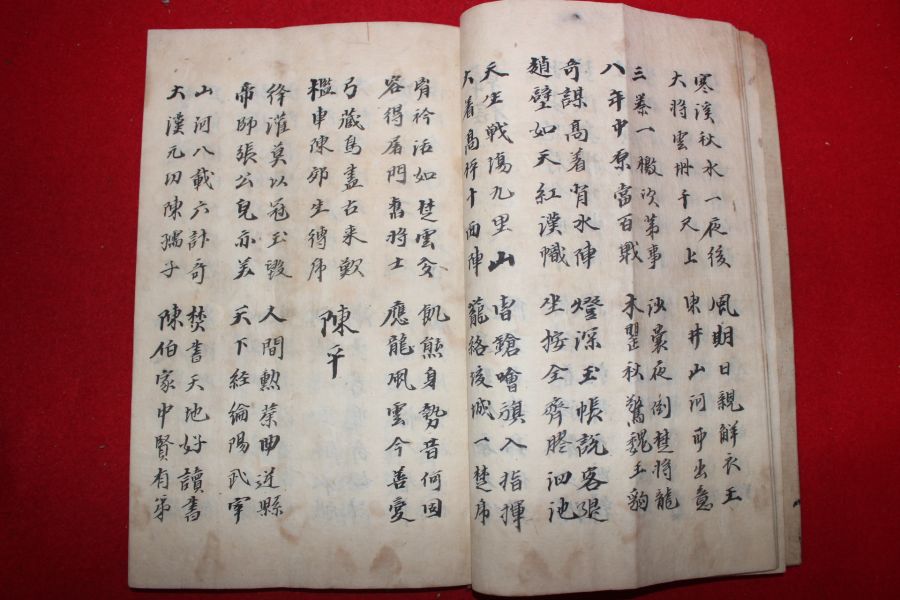 寒溪秋水一夜後 風期日親解衣王
大將雲冊千尺上 東井山河出意
三秦一檄次第事 沙囊夜倒楚將龍
八年中原當百戰 木罌秋驚魏王豹
奇謀高着背水陣 燈深玉帳說客退
趙壁如天紅漢幟 坐按全齊膠泗池
天生戰場九里山 雷鎗噲旗入指揮
大着高將十面陣 籠絡垓城一楚
胷衿活如楚雲夢 飢熊身勢昔何困
容得屠門舊將士 應龍風雲今善變
弓藏鳥盡古來歎
檻車陳郊生縛
陳平
絳灌莫以冠玉毀 人間勲業曲逆縣
帝師張公皃亦美 天下經綸陽武宰
山河八載六計奇 焚書天地好讀書
大漢元功陳孺子 陳伯家中賢有弟